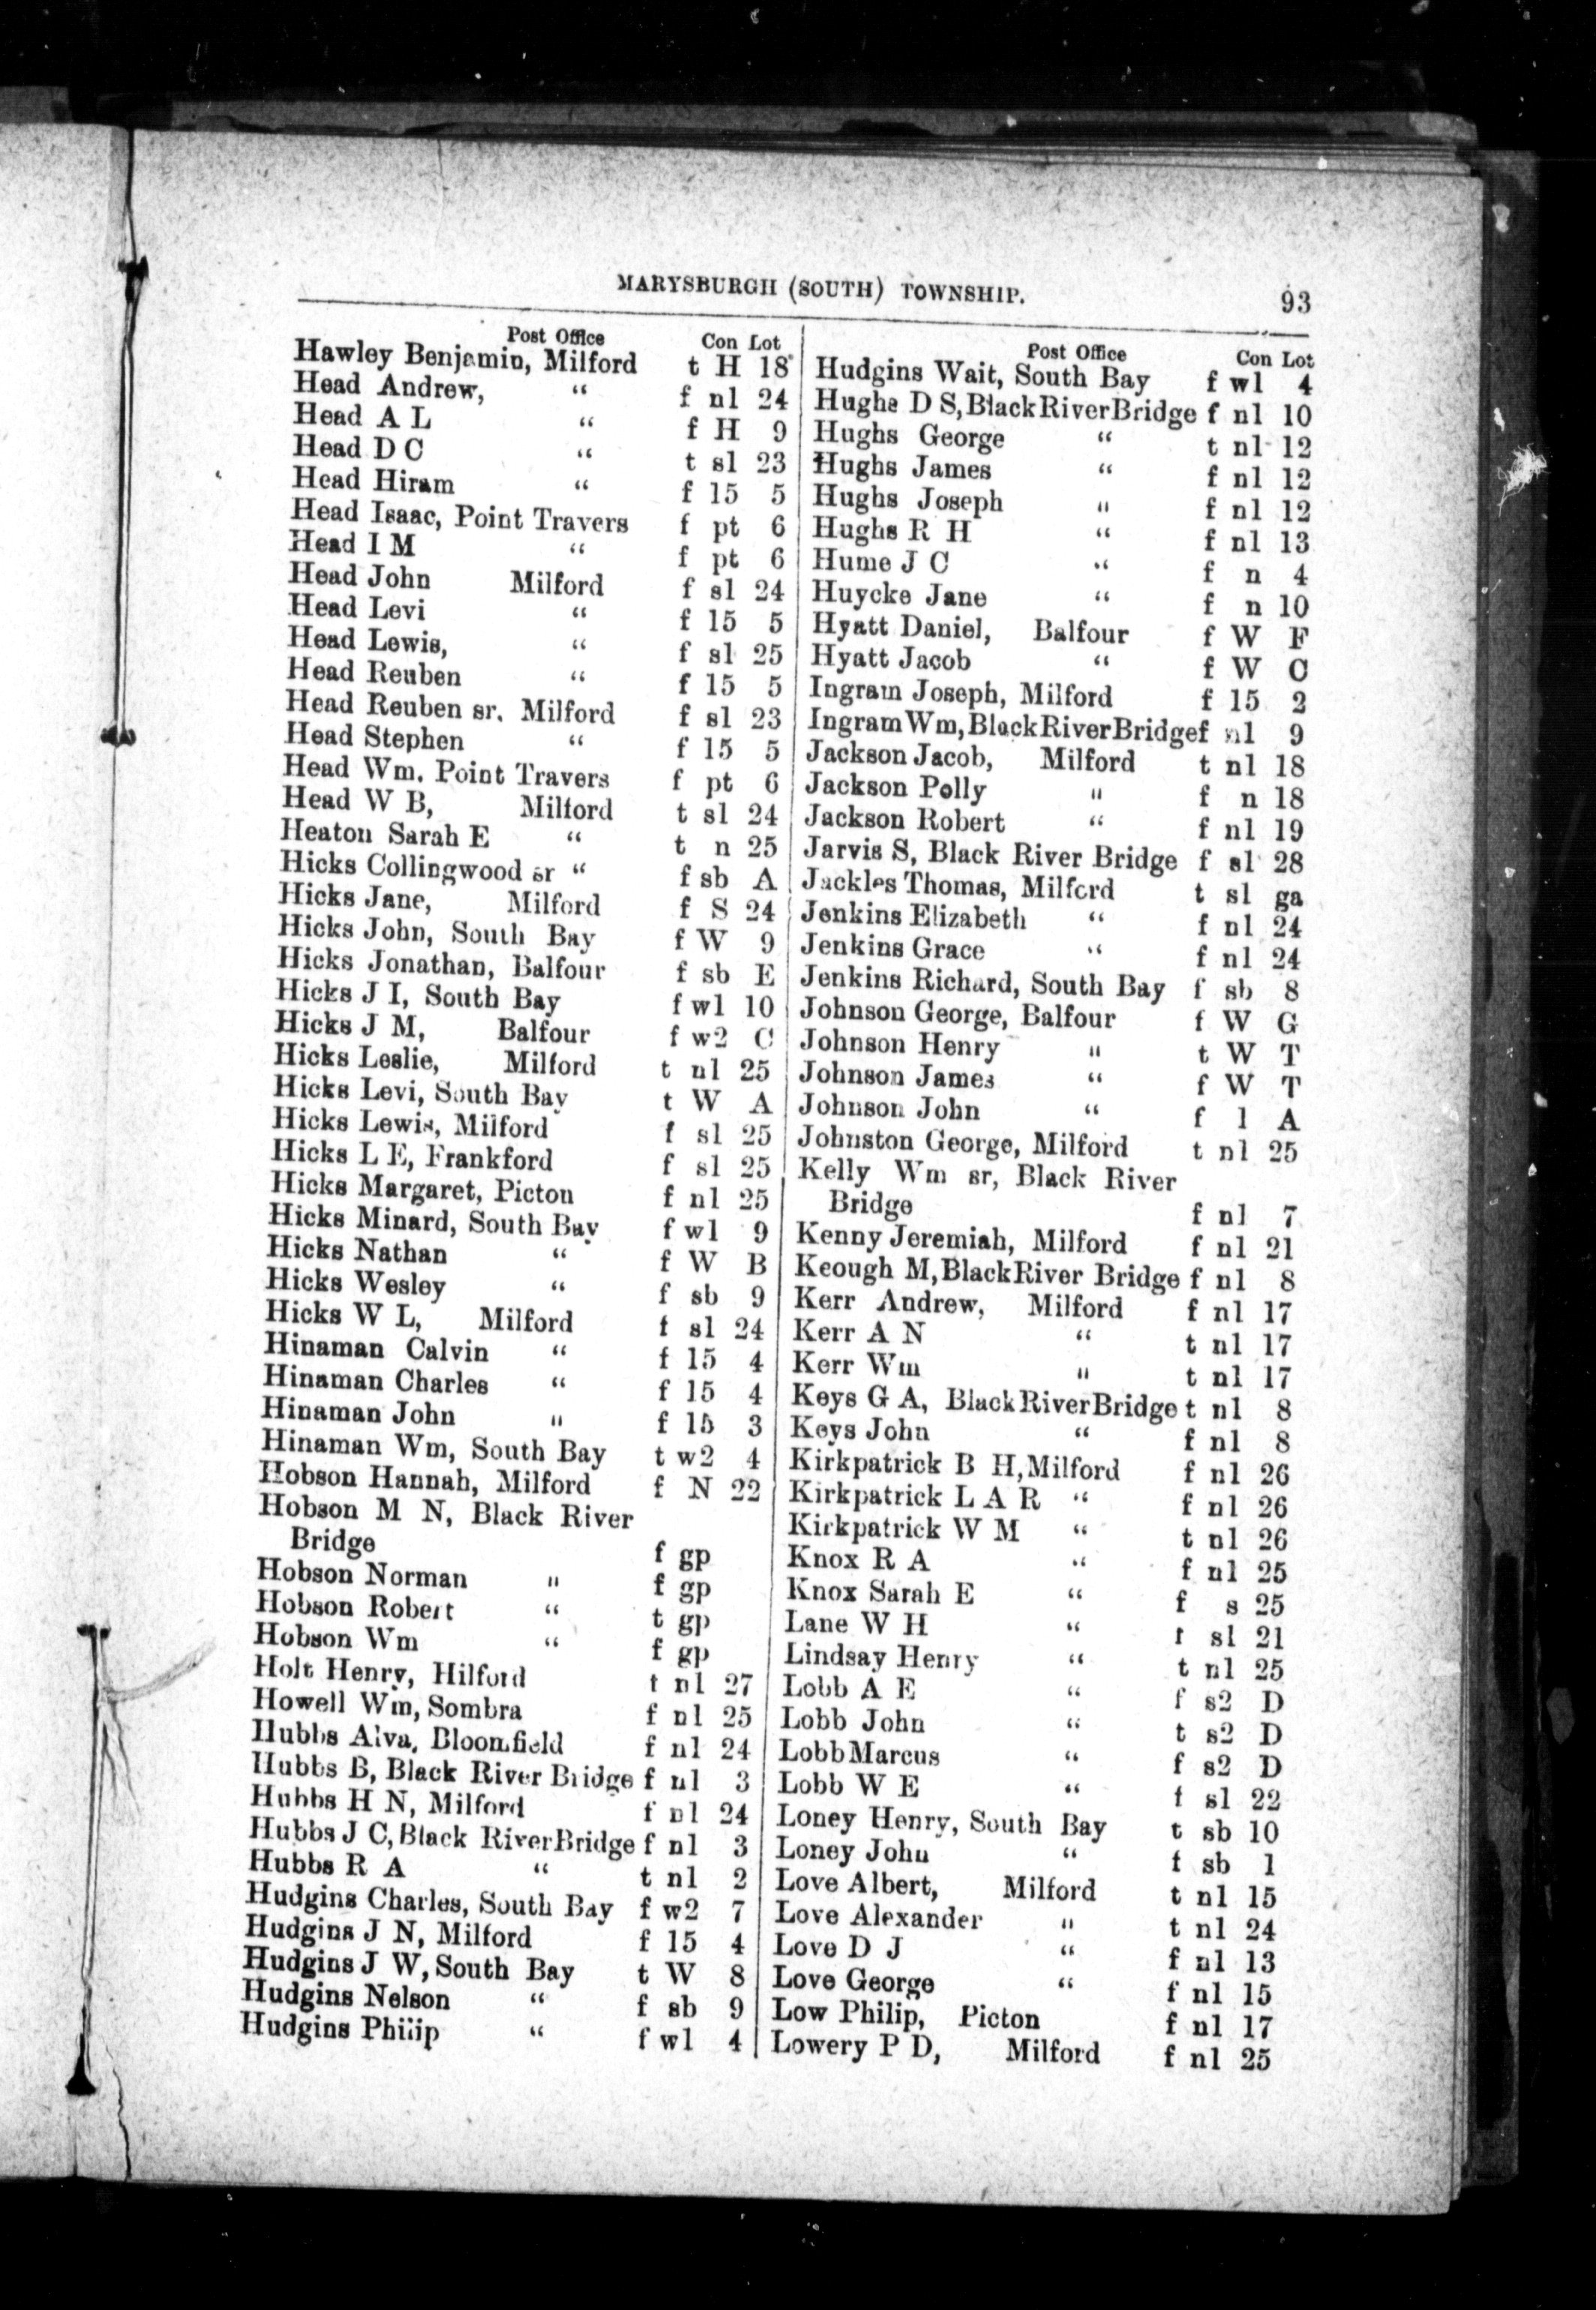 MARYSBURGH (SOUTH) TOWNSHIP. 93
Post Office Con Lot
Hawley Benjamin, Milford t H 18
Head Andrew, “ f nl 24
Head A L “ f H 9
Head D C “ t sl 23
Head Hiram “ f 15 5
Head Isaac, Point Travers f pt 6
Head I M “ f pt 6
Head John Milford f sl 24
Head Levi “ f 15 5
Head Lewis, “ f sl 25
Head Reuben “ f 15 5
Head Reuben sr. Milford f sl 23
Head Stephen “ f 15 5
Head Wm. Point Travers f pt 6
Head W B, Milford t sl 24
Heaton Sarah E “ t n 25
Hicks Collingwood sr “ f sb A
Hicks Jane, Milford f S 24
Hicks John, South Bay f W 9
Hicks Jonathan, Balfour f sb E
Hicks J I, South Bay f wl 10
Hicks J M, Balfour f w2 C
Hicks Leslie, Milford t nl 25
Hicks Levi, South Bay t W A
Hicks Lewis, Milford f sl 25
Hicks L E, Frankford f sl 25
Hicks Margaret, Picton f nl 25
Hicks Minard, South Bay f wl 9
Hicks Nathan “ f W B
Hicks Wesley “ f sb 9
Hicks W L, Milford f sl 24
Hinaman Calvin “ f 15 4
Hinaman Charles “ f 15 4
Hinaman John " f 15 3
Hinaman Wm, South Bay t w2 4
Hobson Hannah, Milford f N 22
Hobson M N, Black River
Bridge f gp
Hobson Norman " f gp
Hobson Robert “ t gp
Hobson Wm “ f gp
Holt Henry, Hilford t nl 27
Howell Wm, Sombra f nl 25
Hubbs Alva, Bloomfield f nl 24
Hubbs B, Black River Bridge f nl 3
Hubbs H N, Milford f nl 24
Hubbs J C, Black RiverBridge f nl 3
Hubbs R A “ t nl 2
Hudgins Charles, South Bay f w2 7
Hudgins J N, Milford f 15 4
Hudgins J W, South Bay t W 8
Hudgins Nelson “ f sb 9
Hudgins Philip “ f wl 4
Post Office Con Lot
Hudgins Wait, South Bay f wl 4
Hughs D S, BlackRiverBridge f nl 10
Hughs George “ t nl 12
Hughs James “ f nl 12
Hughs Joseph " f nl 12
Hughs R H “ f nl 13
Hume J C “ f n 4
Huycke Jane “ f n 10
Hyatt Daniel, Balfour f W F
Hyatt Jacob “ f W C
Ingram Joseph, Milford f 15 2
Ingram Wm, BlackRiverBridge f nl 9
Jackson Jacob, Milford t nl 18
Jackson Polly " f n 18
Jackson Robert “ f nl 19
Jarvis S, Black River Bridge f sl 28
Jackles Thomas, Milford t sl ga
Jenkins Elizabeth “ f nl 24
Jenkins Grace “ f nl 24
Jenkins Richard, South Bay f sb 8
Johnson George, Balfour f W G
Johnson Henry " t W T
Johnson James “ f W T
Johnson John “ f 1 A
Johnston George, Milford t nl 25
Kelly Wm sr, Black River
Bridge f nl 7
Kenny Jeremiah, Milford f nl 21
Keough M, BlackRiver Bridge f nl 8
Kerr Andrew, Milford f nl 17
Kerr A N “ t nl 17
Kerr Wm " t nl 17
Keys G A, BlackRiverBridge t nl 8
Keys John “ f nl 8
Kirkpatrick B H, Milford f nl 26
Kirkpatrick L A R “ f nl 26
Kirkpatrick W M “ t nl 26
Knox R A “ f nl 25
Knox Sarah E “ f s 25
Lane W H “ f sl 21
Lindsay Henry “ t nl 25
Lobb A E “ f s2 D
Lobb John “ t s2 D
Lobb Marcus “ f s2 D
Lobb W E “ f sl 22
Loney Henry, South Bay t sb 10
Loney John “ f sb 1
Love Albert, Milford t nl 15
Love Alexander " t nl 24
Love D J “ f nl 13
Love George “ f nl 15
Low Philip, Picton f nl 17
Lowery P D, Milford f nl 25